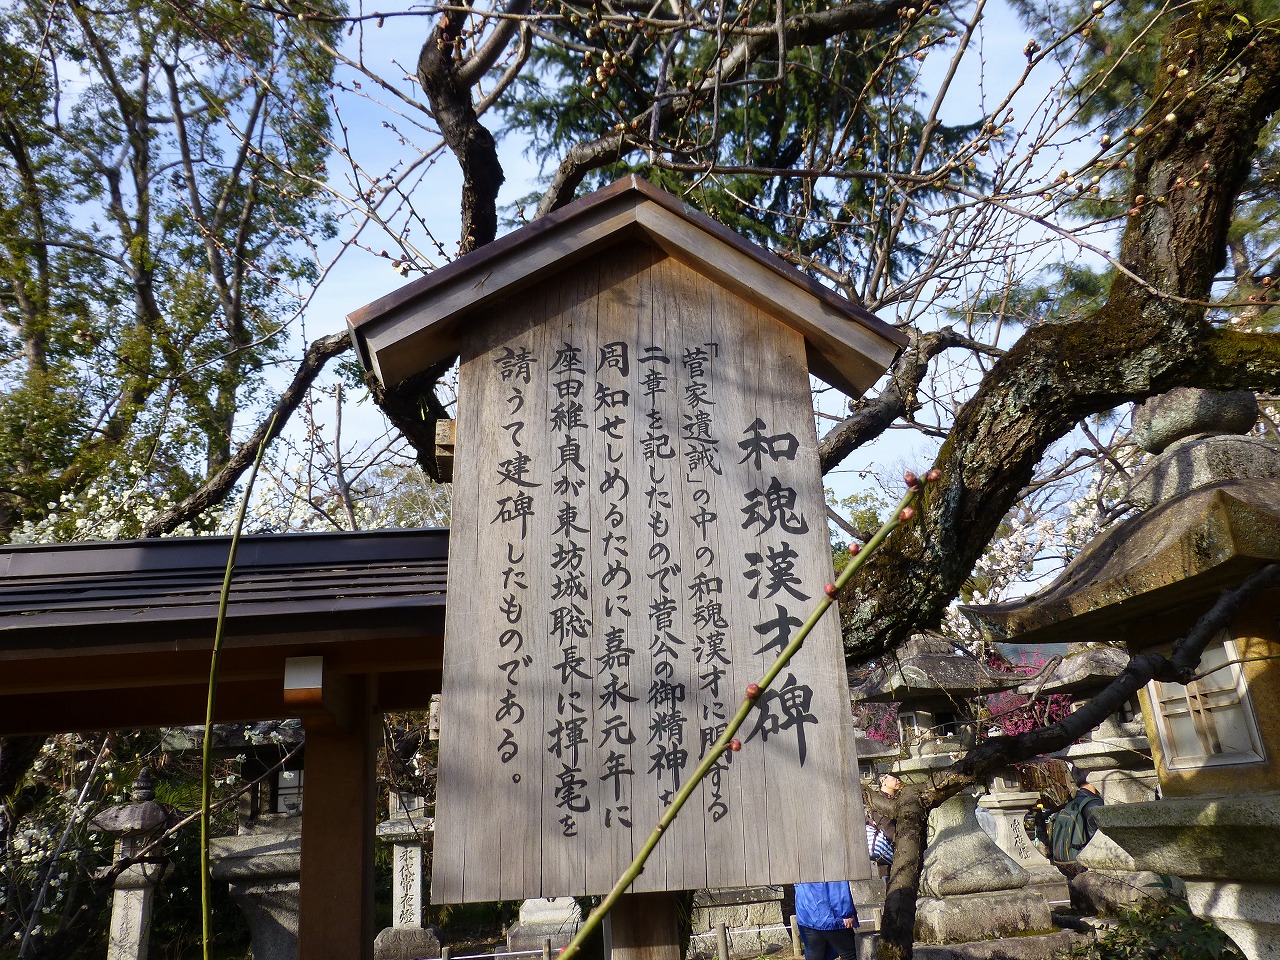 和魂漢才碑
「菅家遺誡」の中の和魂漢才に関する
二章を記したもので菅公の御精神を
周知せしめるために嘉永元年に
座田維貞が東坊城聡長に揮毫を
請うて建碑したものである。
永代常夜燈
常夜燈